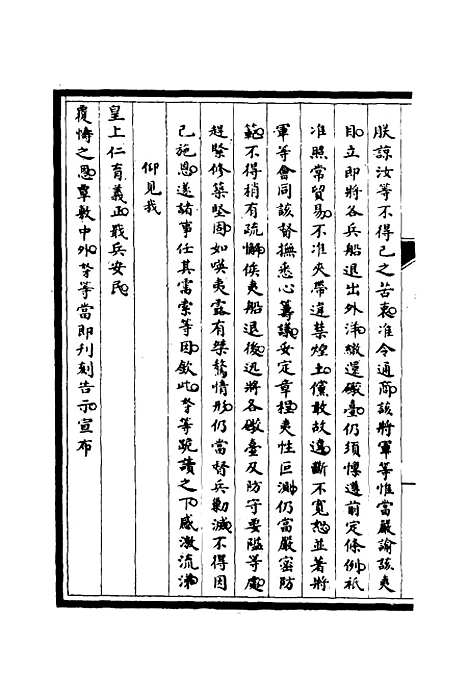 朕諒汝等不得已之苦衷准令通商該將軍等惟當嚴諭該夷
目立即將各兵船退出外洋繳還礮臺仍須懍遵前定條例祇
准照常貿易不准夾帶違禁煙土儻敢故違斷不寬恕並著將
軍等會同該督撫悉心籌議妥定章程夷性叵測仍當嚴密防
範不得稍有疏懈俟夷船退後迅將各礮臺及防守要隘等處
趕緊修築堅固如嘆夷露有桀驁情形仍當督兵勦滅不得因
已施恩遂諸事任其需索等因欽此孥等跪讀之下感激流涕
仰見我
皇上仁育義正戢兵安民
覆幬之恩覃敷中外孥等當即刊刻告示宣布